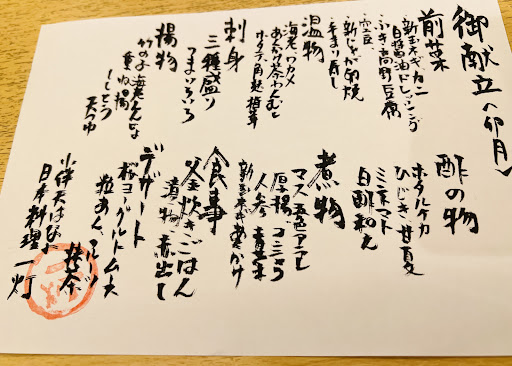 御献立〈卯月〉
前菜
新玉ネギカニ
白醤油ドレッシング
ふき高野豆腐
・空豆
・新じゃが卵焼
・手まり寿し
温物
海老ワカメ
あんかけ茶わんむし
ホタテ角麩椎茸
刺身
三種盛り
つまいろいろ
揚物
竹の子海老しんじょ
重ね揚
ししとう
天つゆ
酢の物
ホタルイカ
ひじき甘夏
ミニトマト
白酢和え
煮物
マス
厚揚コンニャク
人参青菜
新玉ネギあんかけ
食事
釜炊きごはん
漬物赤出し
デザート
桜ヨーグルトムース
粒あん
抹茶
日本料理一灯